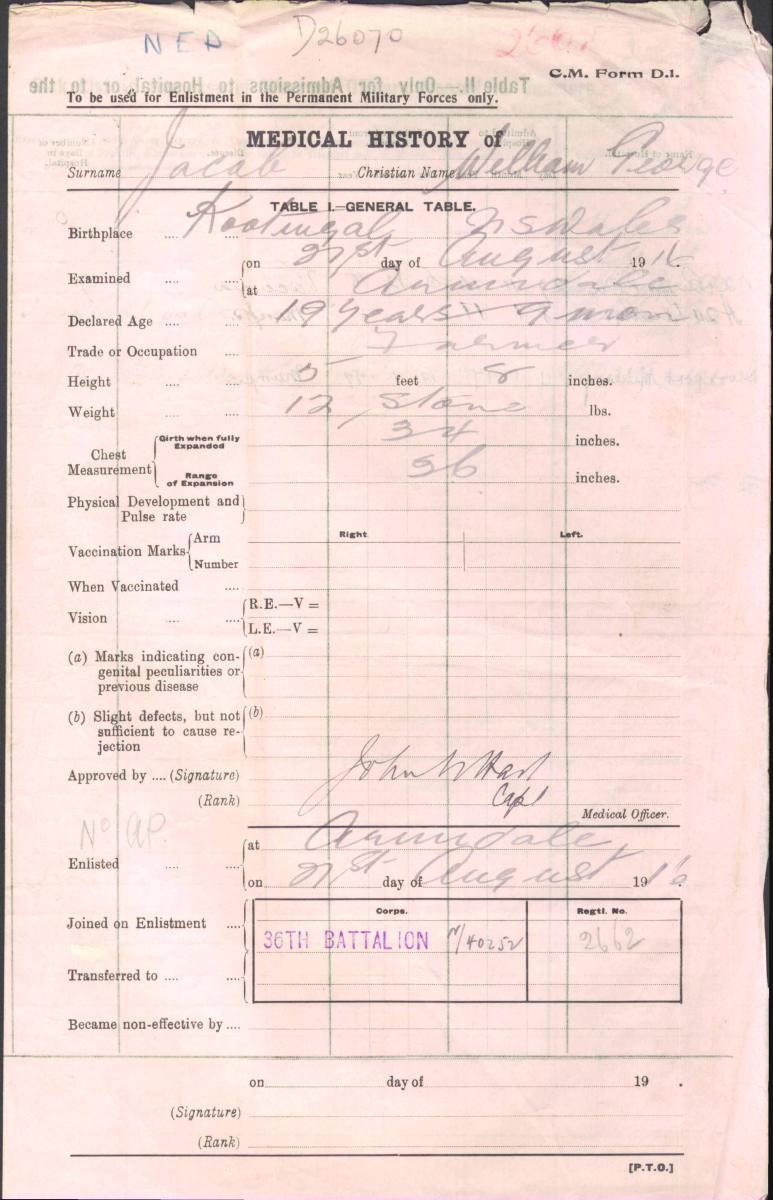 NEP D26070
C.M. Form D.1.
To be used for Enlistment in the Permanent Military Forces only.
MEDICAL HISTORY of
Surname Jacob Christian Name William George
TABLE I.—GENERAL TABLE.
Birthplace .... .... Kootingal N S Wales
Examined .... .... on 21st day of August 19 16
at Armidale
Declared Age .... .... 19 years 9 mon
Trade or Occupation .... Farmer
Height .... .... 5 feet 8 inches.
Weight .... .... 12 stone lbs.
Chest Measurement Girth when fully Expanded 34 inches.
Range of Expansion 36 inches.
Physical Development and Pulse rate
Right. Left.
Vaccination Marks Arm
Number
When Vaccinated ....
Vision .... .... R.E.—V =
L.E.—V =
(a) Marks indicating con- (a)
genital peculiarities or
previous disease
(b) Slight defects, but not (b)
sufficient to cause re-
jection
Approved by .... (Signature) John W Hart
(Rank) Capt
Medical Officer.
Enlisted .... .... at Armidale
on 21st day of August 19 16
Corps. Regtl. No.
Joined on Enlistment .... 36TH BATTALION N/40252 2662
Transferred to .... ....
Became non-effective by ....
on day of 19 .
(Signature)
(Rank)
[P.T.O.]